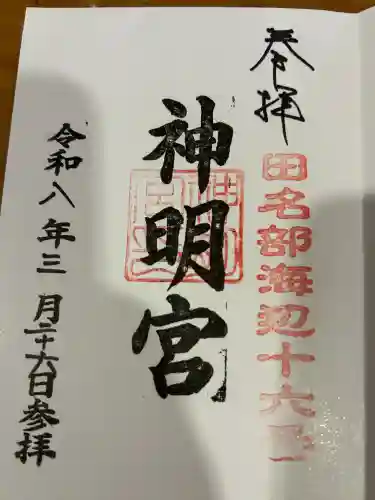 奉拝
田名部海辺十六番
神明宮
令和八年三月二十六日参拝